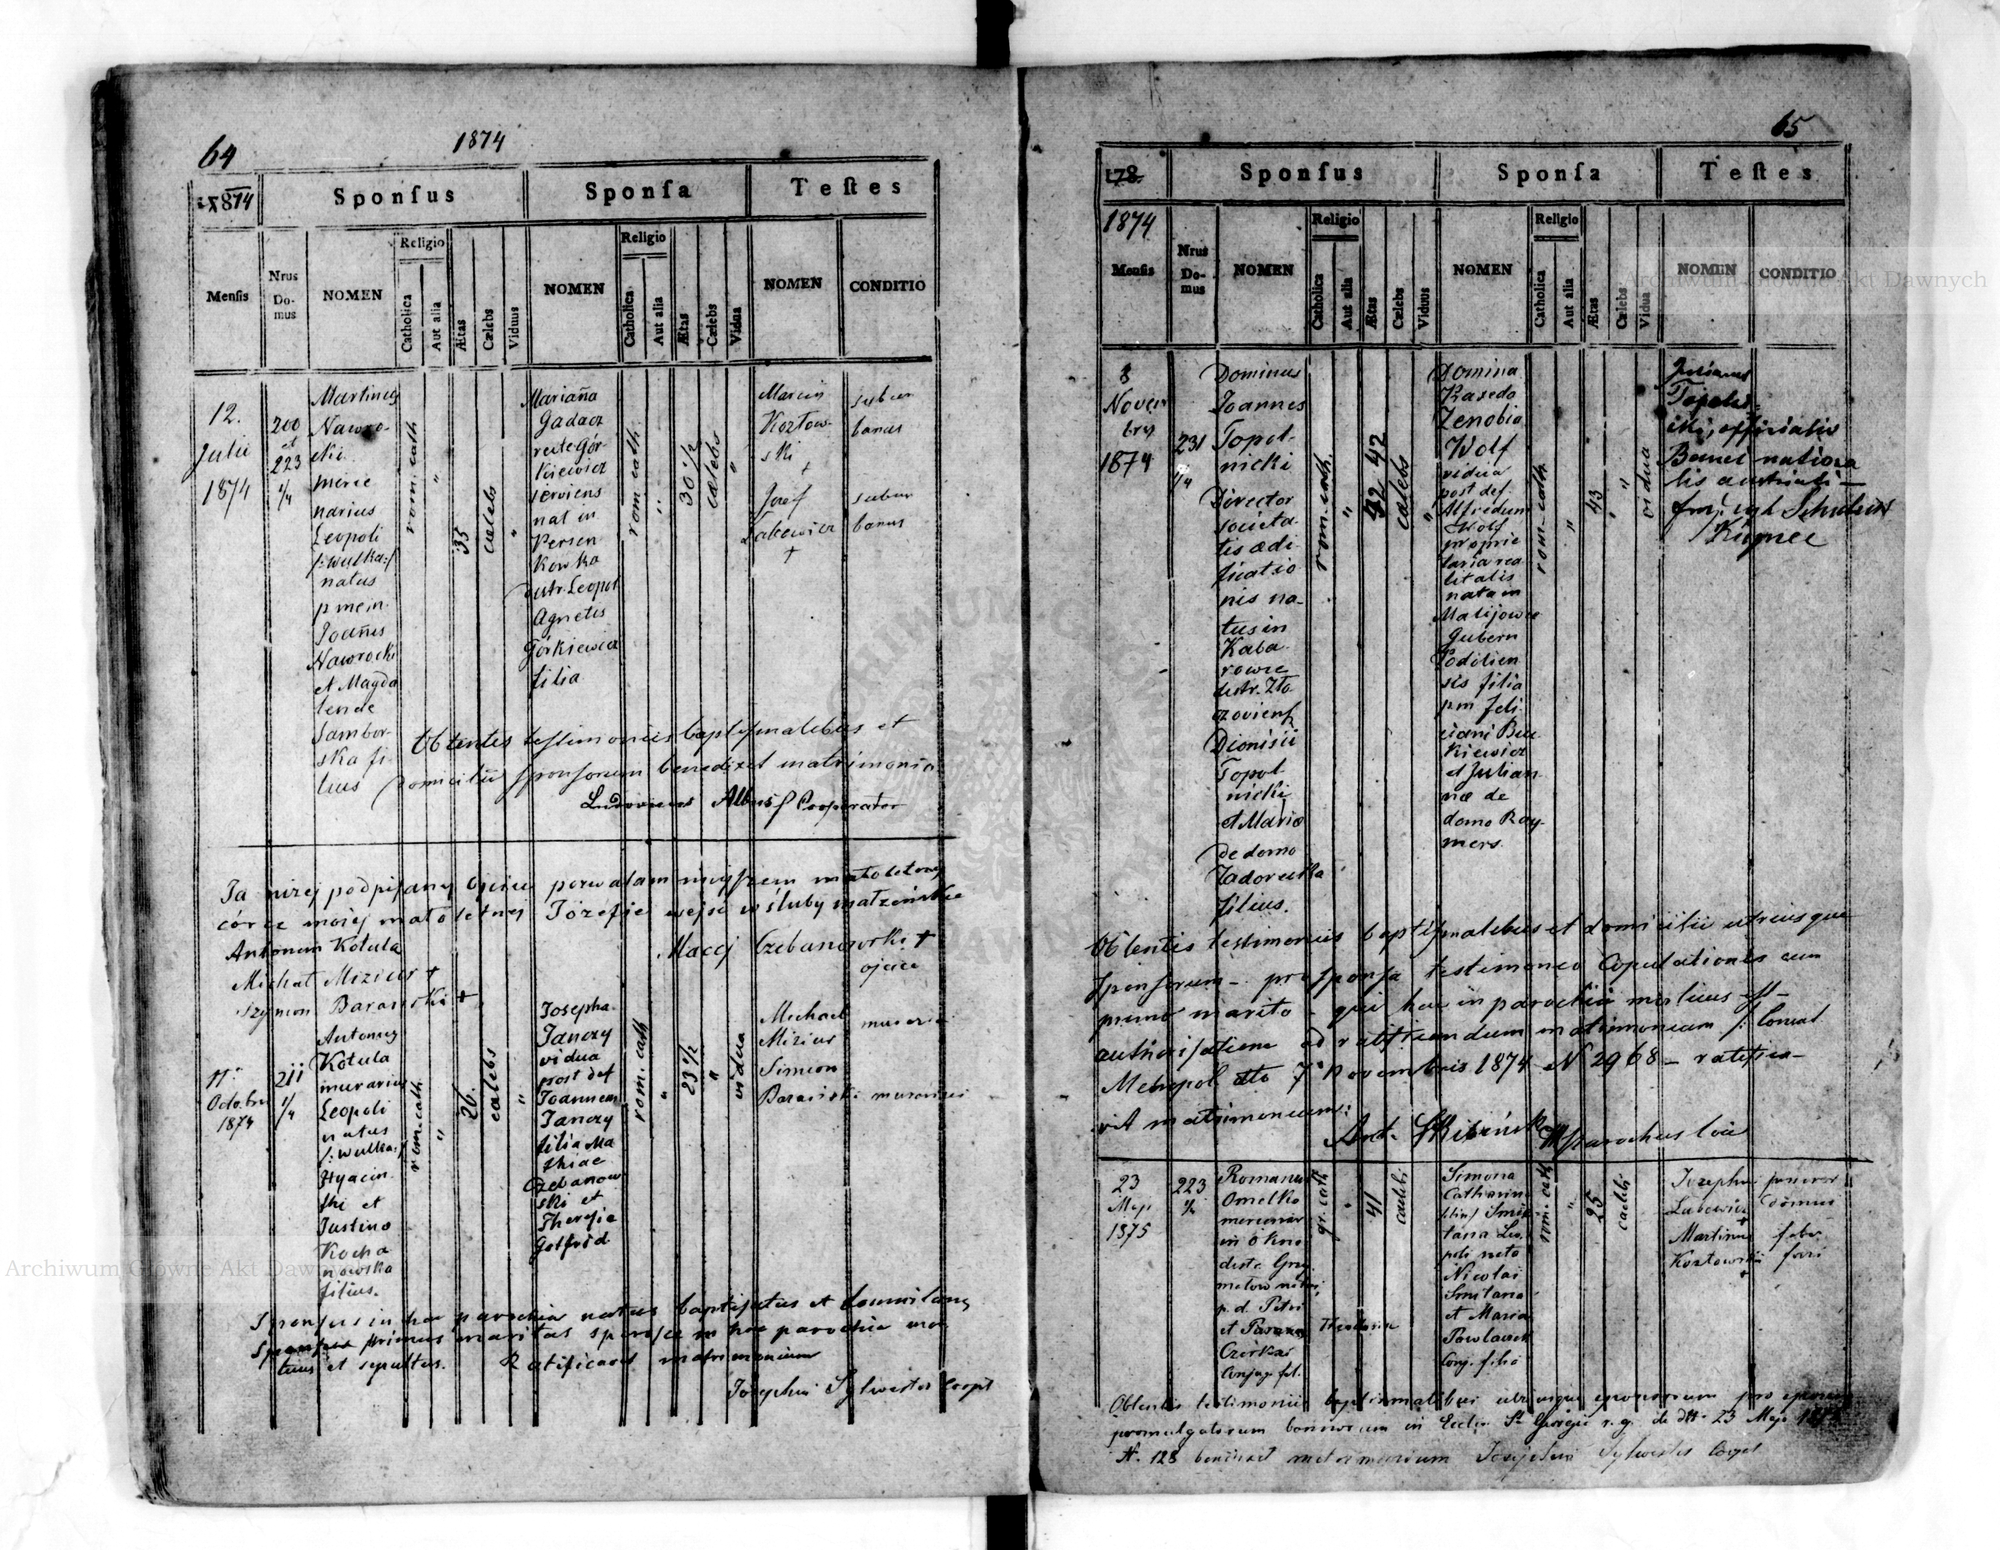 64
1874
1874
Sponſus
Sponſa
Teſtes
Menſis
Nrus
Do-
mus
NOMEN
Religio
Catholica
Aut alia
Ætas
Cælebs
Viduus
NOMEN
Religio
Catholica
Aut alia
Ætas
Cælebs
Vidua
NOMEN
CONDITIO
12.
Julii
1874
200
et
223
1/4
Martinus
Nawro-
cki
merce
narius
Leopoli
/:Wulka:/
natus
p mein
Joañis
Nawrocki
et Magda
lenae
Sambor-
ska fi-
lius
rom. cath
"
35
caelebs
"
Mariaña
Gadacz
recte Gór-
kiewicz
serviens
nat in
Persen
kowka
distr. Leopol
Agnetis
Górkiewicz
filia
rom cath
"
30 1/2
caelebs
"
Marcin
Kozłow-
ski
+
Jozef
Lakewicz
+
subur
banus
subur
banus
Obtentis testimoniis baptismalibus et
domicilii sponsorum benedixit matrimonio
Ludovicus Albus Cooperator
Ja niżej podpisany Ojciec pozwalam małoletniej
córce mojej małoletniej Józefie wejść w śluby małżeńskie
Antonem Kotula
Maciej Czebanowski +
ojciec
Michał Mizius +
Szymon Barański +
11
Octobris
1874
211
1/4
Antonius
Kotula
murarius
Leopoli
natus
/:Wulka:/
Hyacin
thi et
Justina
Kocha
nowska
filius.
rom. cath
"
26.
caelebs
"
Josepha
Janczy
vidua
post def
Joannem
Janczy
filia Ma
thiae
Czebanow
ski et
Theresia
Gotfrid
rom. cath
"
23 1/2
"
vidua
Michael
Mizius
Simeon
Barański
murarius
murarius
Sponsus in hac parochia natus baptisatus et
primus maritus sponsae in hac parochia mor
tuus et sepultus. Ratificavit matrimonium
Josephus Sylwester Coop
65
178
1874
Sponſus
Sponſa
Teſtes
Menſis
Nrus
Do-
mus
NOMEN
Religio
Catholica
Aut alia
Ætas
Cælebs
Viduus
NOMEN
Religio
Catholica
Aut alia
Ætas
Cælebs
Vidua
NOMEN
CONDITIO
8
Novem
bris
1874
231
1/4
Dominus
Joannes
Topol-
nicki
Director
societa-
tis aedi
ficatio
nis na-
tus in
Kaba-
rowce
distr. Zło
czoviens
Dionisii
Topol
nicki
et Maria
de domo
Zadorecka
filius.
rom. cath.
"
42 42
caelebs
"
Domina
Kasedo
Zenobia
Wolf
vidua
post def.
Alfredum
Wolf
proprie
taria rea
litatis
nata in
Malijowce
Gubern
Podilien
sis filia
pm Feli
ciani Buc
kiewicz
et Julian
nae de
domo Ray-
mers
rom-cath
"
43
"
vidua
Julianus
officialis
national
lis austriaci
Schubert
Obtentis testimoniis baptismalibus et domicilii utriusque
Sponsorum - pro sponsa testimonio Copulationis cum
primo marito - qui hac in parochia mortuus est -
authorisatione ad ratificandum matrimonium /: Consist
Metropol dto 7 Novembris 1874 N 2968 - ratifica-
vit matrimonium:
Ant. parochus loci
23
Maji
1875
223
1/4
Romanus
Omelko
mercenar
in Okno
distr. Grzy
małow natus,
p. d. Petri
et Parania Theodosia
Czerkas
Conjug. fil.
gr. cath
"
41
caelebs
Simona
Catharina
Smie
tana Leo
poli nata
Nicolai
Smitana
et Maria
Pawlaczek
Conj. filia
rom. cath
"
25
caelebs
Josephus
Lakowicz
+
Martinus
Kozłowski
+
possessor
domus
faber
Obtentis testimonii baptismalibus utriusque sponsorum pro sponso
promulgatorum bannorum in Eccla St Georgii r. g. de dto 23 Maji 1875
N. 128 benedixit matrimonium Josephus Sylwester Coop
Archiwum Główne Akt Dawnych
Archiwum Główne Akt Dawnych